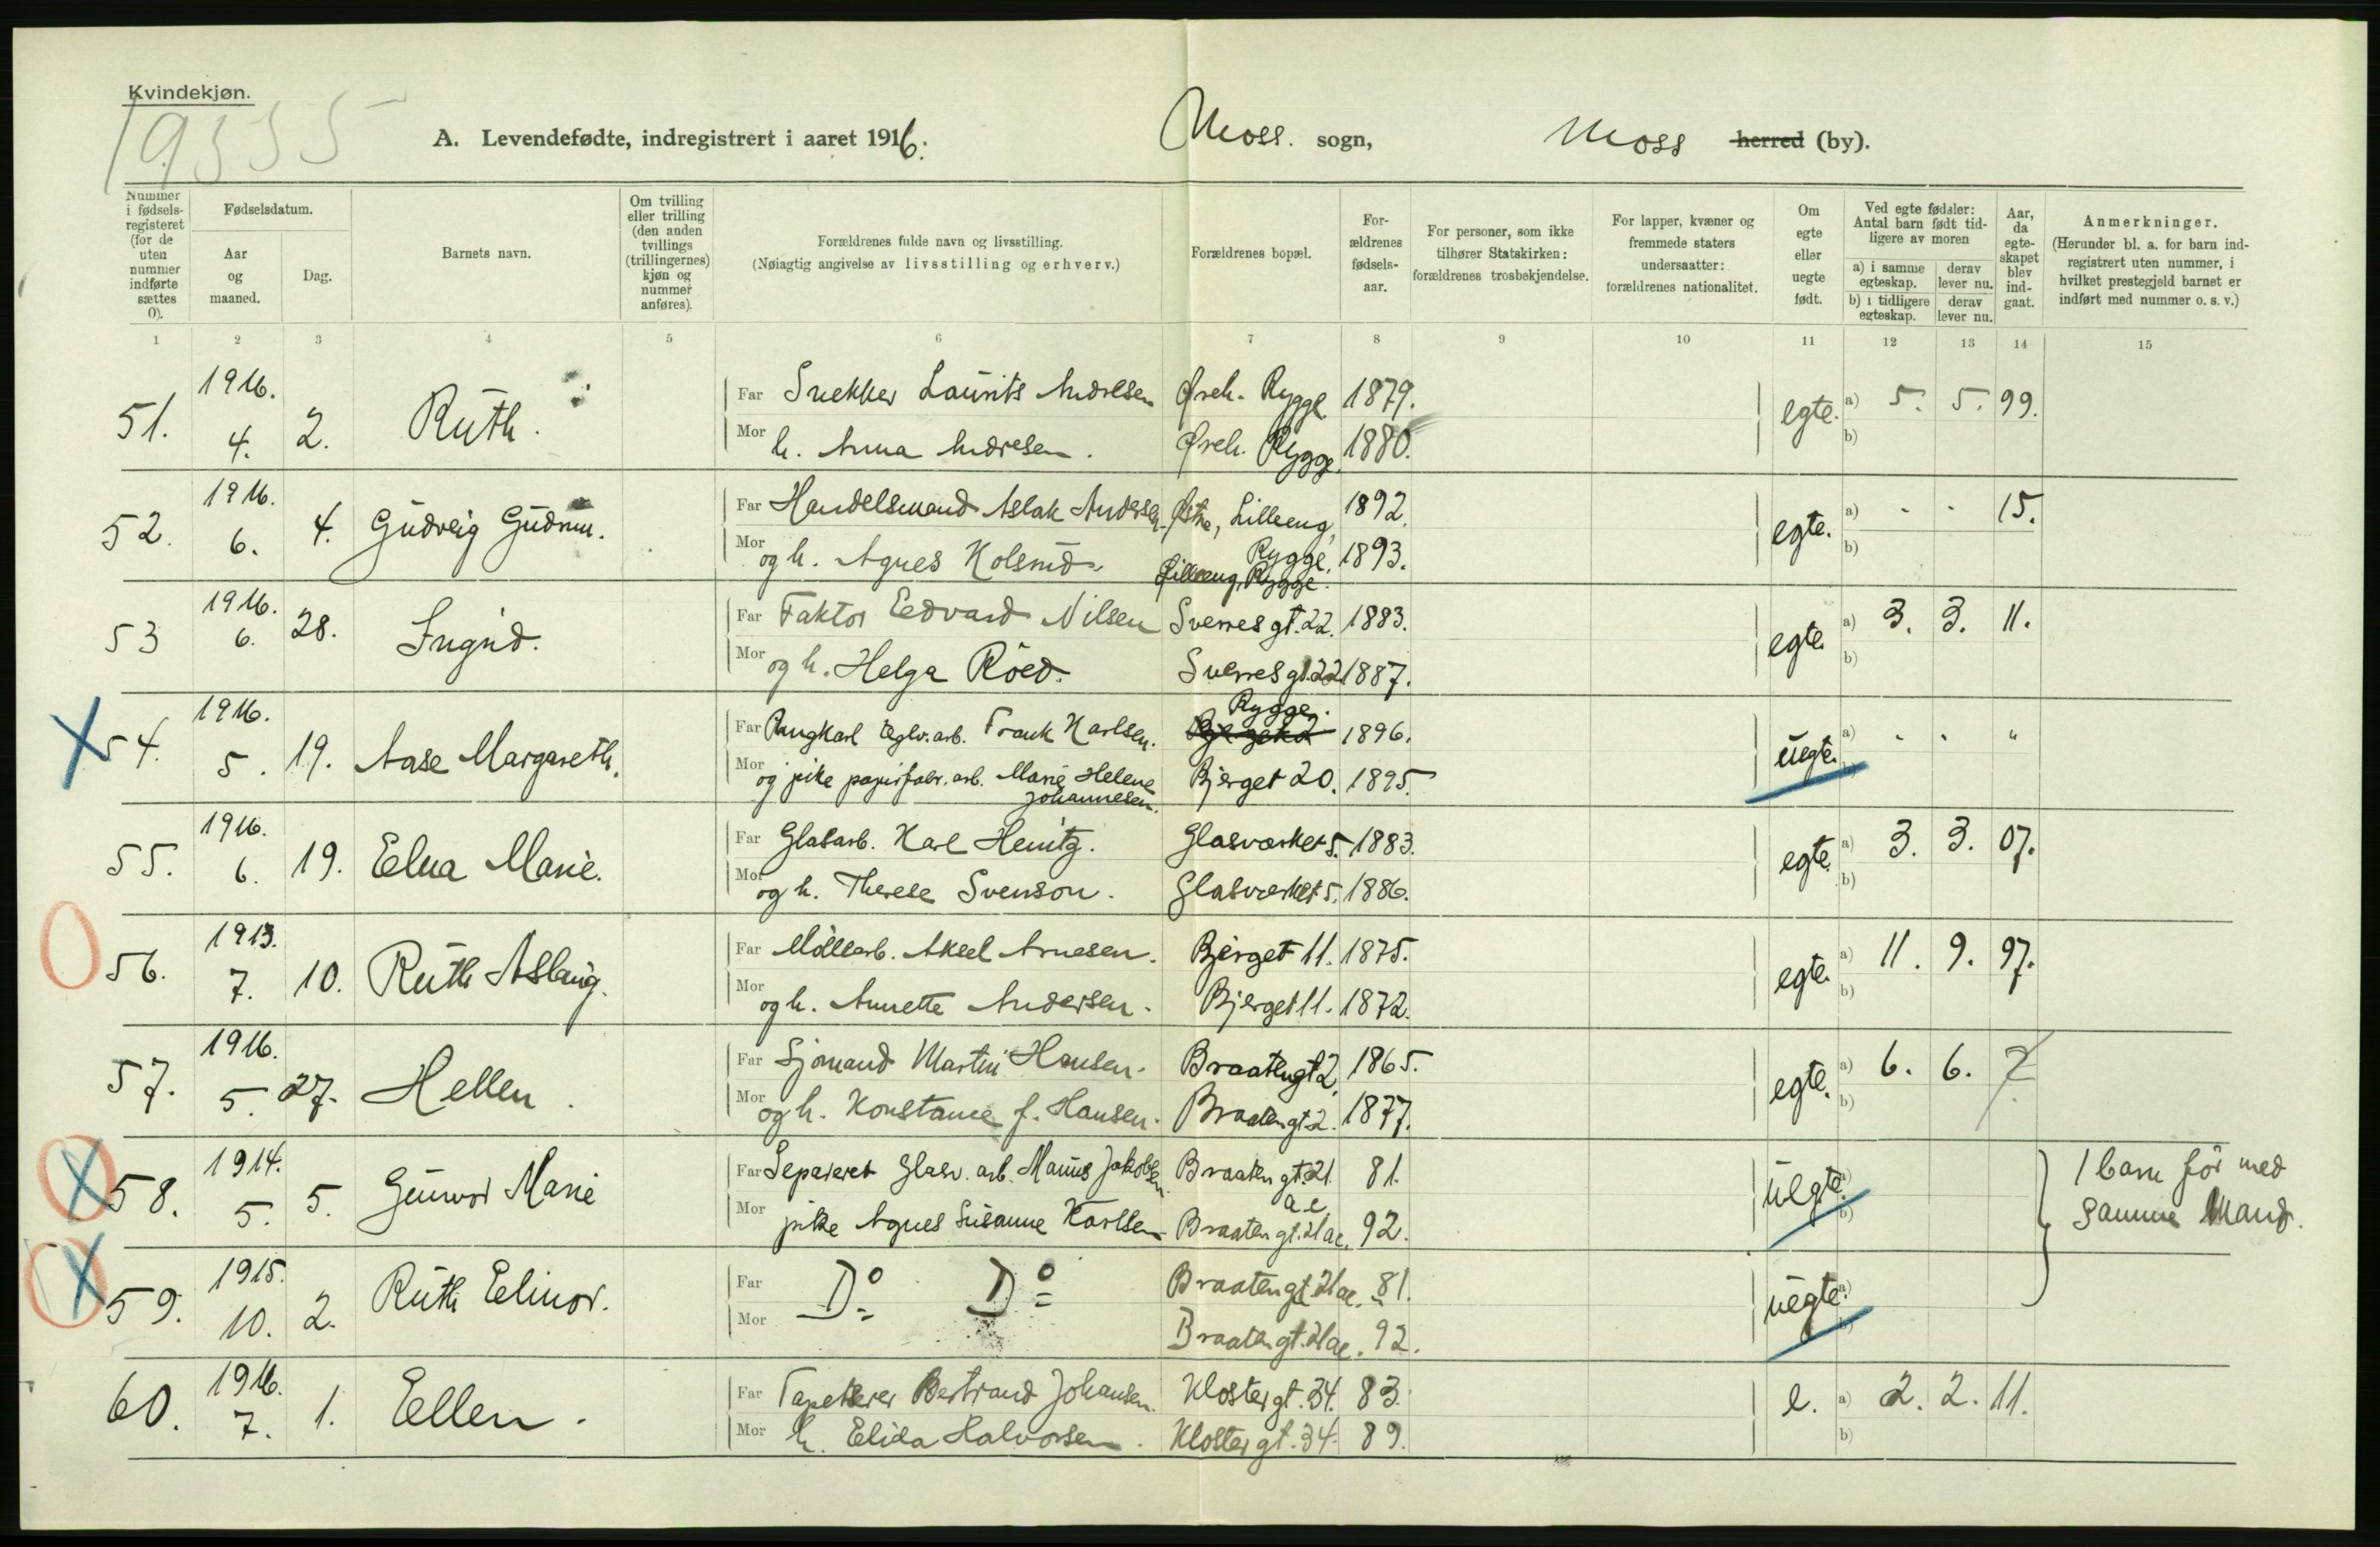 Kvindekjøn.
19335
A. Levendefødte, indregistrert i aaret 1916. Moss. sogn, Moss herred (by).
Nummer i fødsels-registeret (for de uten nummer indførte sættes 0).
Fødselsdatum.
Aar og maaned.
Dag.
Barnets navn.
Om tvilling eller trilling (den anden tvillings (trillingernes) kjøn og nummer anføres).
Forældrenes fulde navn og livsstilling.
(Nøiagtig angivelse av livsstilling og erhverv.)
Forældrenes bopæl.
For-ældrenes fødsels-aar.
For personer, som ikke tilhører Statskirken: forældrenes trosbekjendelse.
For lapper, kvæner og fremmede staters undersaatter: forældrenes nationalitet.
Om egte eller uegte født.
Ved egte fødsler: Antal barn født tid-ligere av moren
a) i samme egteskap. derav lever nu.
b) i tidligere egteskap. derav lever nu.
Aar, da egte-skapet blev ind-gaat.
Anmerkninger.
(Herunder bl. a. for barn ind-registrert uten nummer, i hvilket prestegjeld barnet er indført med nummer o. s. v.)
1 2 3 4 5 6 7 8 9 10 11 12 13 14 15
51. 1916. 4. 2. Ruth. Far Snekker Laurits Andresen Øreh. Rygge. 1879. egte. a) 5. 5. 99.
Mor h. Anna Andresen. Øreh. Rygge. 1880. b)
52. 1916. 6. 4. Gudveig Gudrun. Far Handelsmand Aslak Andersen. Østre, Lilleeng, Rygge. 1892. egte. a) - - 15.
Mor og h. Agnes Kolsrud. Lilleeng, Rygge. 1893. b)
53 1916. 6. 28. Ingrid. Far Faktor Edvard Nilsen Sverresgt. 22. 1883. egte. a) 3. 3. 11.
Mor og h. Helga Röed. Sverresgt. 22 1887. b)
54. 1916. 5. 19. Aase Margareth. Far Ungkarl teglv. arb. Frank Karlsen. Rygge. 1896. uegte. a) - - "
Mor og pike papirfabr. arb. Marie Helene Johannesen. Bjerget 20. 1895. b)
55. 1916. 6. 19. Edna Marie. Far Glasarb. Karl Heintz. Glasværket 5. 1883. egte. a) 3. 3. 07.
Mor og h. Therese Svenson. Glasværket 5. 1886. b)
56. 1913. 7. 10. Ruth Aslaug. Far Möllearb. Aksel Arnesen. Bjerget 11. 1875. egte. a) 11. 9. 97.
Mor og h. Annette Andersen. Bjerget 11. 1872. b)
57. 1916. 5. 27. Hellen. Far Sjömand Martin Hansen. Braatengt 2. 1865. egte. a) 6. 6. ?
Mor og h. Konstance f. Hansen. Braatengt 2. 1877. b)
58. 1914. 5. 5. Gunvor Marie Far Separeret Glasv. arb. Marius Jakobsen. Braatengt. 21 ae. 81. uegte. a) 1 barn för med
Mor pike Agnes Susanne Karlsen Braatengt. 21 ae. 92. b) samme Mand.
59. 1915. 10. 2. Ruth Elinor. Far Do Do Braatengt. 21 ae. 81. uegte. a)
Mor Braatengt. 21 ae. 92. b)
60. 1916. 7. 1. Ellen. Far Tapetserer Bertrand Johansen. Klostergt. 34. 83. e. a) 2. 2. 11.
Mor h. Elida Halvorsen. Klostergt. 34. 89. b)